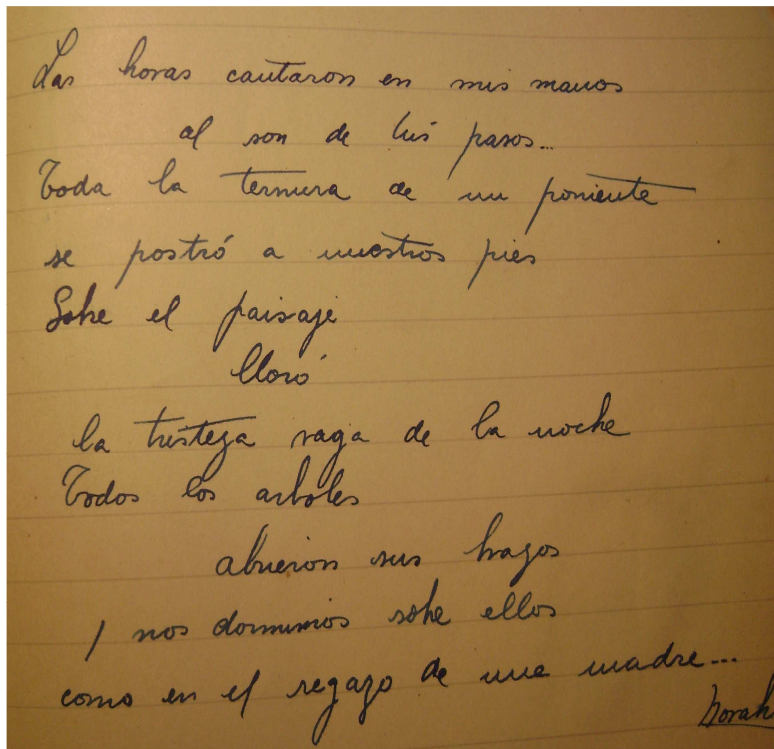 Las horas cantaron en mis manos
al son de tus pasos...
Toda la ternura de un poniente
se postró a nuestros pies
Sobre el paisaje
lloró
la tristeza vaga de la noche
Todos los arboles
abrieron sus brazos
y nos dormimos sobre ellos
como en el regazo de una madre...
Norah